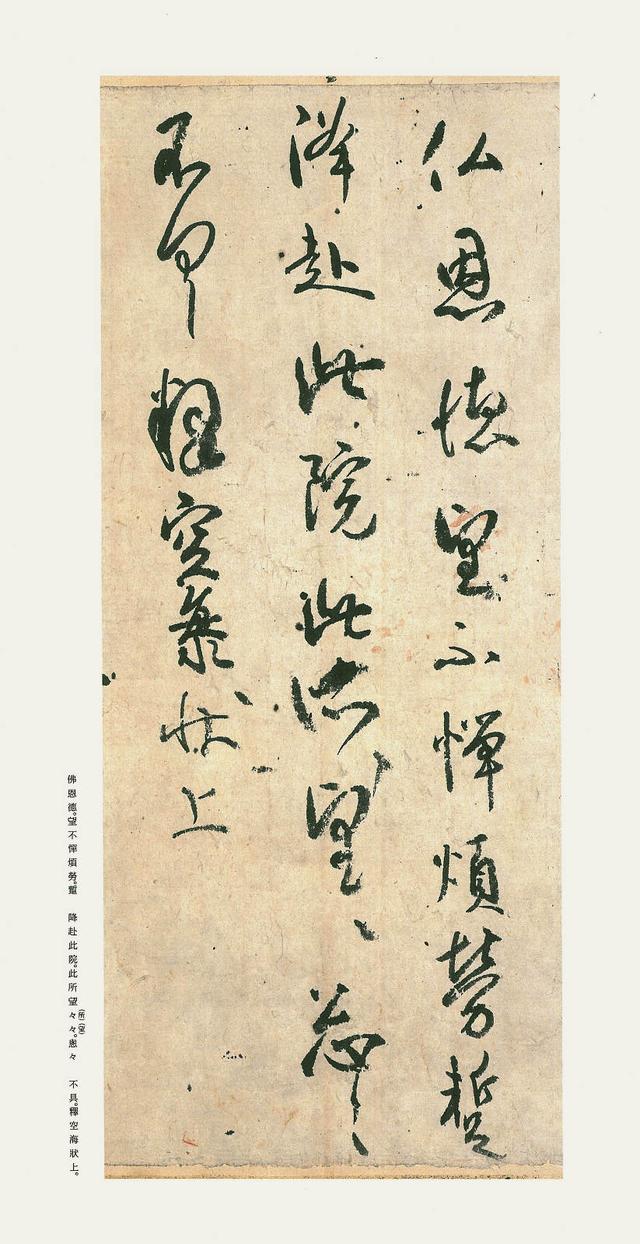 仏恩徳望不憚煩勞蹔
降赴此院此所望〻𢙣〻
不具釋空海状上
佛恩德。望不憚煩勞。蹔　降赴此院。此所望々々。（所）（望）恖々　不具。釋空海狀上。